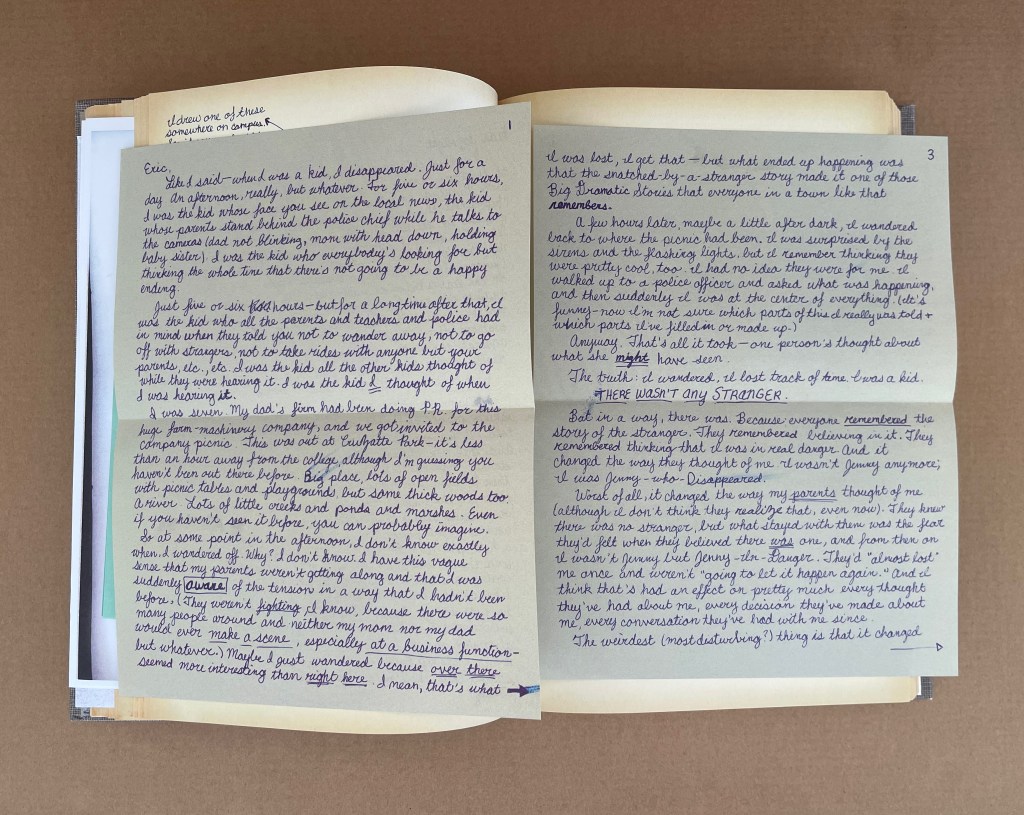 I drew one of these
somewhere on campus.
1
Eric,
Like I said—when I was a kid, I disappeared. Just for a
day. An afternoon, really, but whatever. For five or six hours,
I was the kid whose face you see on the local news, the kid
whose parents stand behind the police chief while he talks to
the cameras (dad not blinking, mom with head down, holding
baby sister). I was the kid who everybody's looking for but
thinking the whole time that there's not going to be a happy
ending.
Just five or six hours—but for a long time after that, I
was the kid who all the parents and teachers and police had
in mind when they told you not to wander away, not to go
off with strangers, not to take rides with anyone but your
parents, etc., etc. I was the kid all the other kids thought of
while they were hearing it. I was the kid I thought of when
I was hearing it.
I was seven. My dad's firm had been doing P.R. for this
huge farm-machinery company, and we got invited to the
company picnic. This was out at Park—it's less
than an hour away from the college, although I'm guessing you
haven't been out there before. Big place, lots of open fields
with picnic tables and playgrounds, but some thick woods too.
A river. Lots of little creeks and ponds and marshes. Even
if you haven't seen it before, you can probably imagine.
So at some point in the afternoon, I don't know exactly
when, I wandered off. Why? I don't know. I have this vague
sense that my parents weren't getting along and that I was
suddenly aware of the tension in a way that I hadn't been
before. (They weren't fighting, I know, because there were so
many people around and neither my mom nor my dad
would ever make a scene, especially at a business function—
but whatever.) Maybe I just wandered because over there
seemed more interesting than right here. I mean, that's what
3
I was lost, I get that—but what ended up happening was
that the snatched-by-a-stranger story made it one of those
Big Dramatic Stories that everyone in a town like that
remembers.
A few hours later, maybe a little after dark, I wandered
back to where the picnic had been. I was surprised by the
sirens and the flashing lights, but I remember thinking they
were pretty cool, too. I had no idea they were for me. I
walked up to a police officer and asked what was happening,
and then suddenly I was at the center of everything. (It's
funny—now I'm not sure which parts of this I really was told +
which parts I've filled in or made up.)
Anyway. That's all it took—one person's thought about
what she might have seen.
The truth: I wandered, I lost track of time. I was a kid.
THERE WASN'T ANY STRANGER.
But in a way, there was. Because everyone remembered the
story of the stranger. They remembered believing in it. They
remembered thinking that I was in real danger. And it
changed the way they thought of me. I wasn't Jenny anymore;
I was Jenny-who-Disappeared.
Worst of all, it changed the way my parents thought of me
(although I don't think they realize that, even now). They knew
there was no stranger, but what stayd with them was the fear
they'd felt when they believed there was one, and from then on
I wasn't Jenny but Jenny-In-Danger. They'd "almost lost"
me once and weren't "going to let it happen again." And I
think that's had an effect on pretty much every thought
they've had about me, every decision they've made about
me, every conversation they've had with me since.
The weirdest (most disturbing?) thing is that it changed